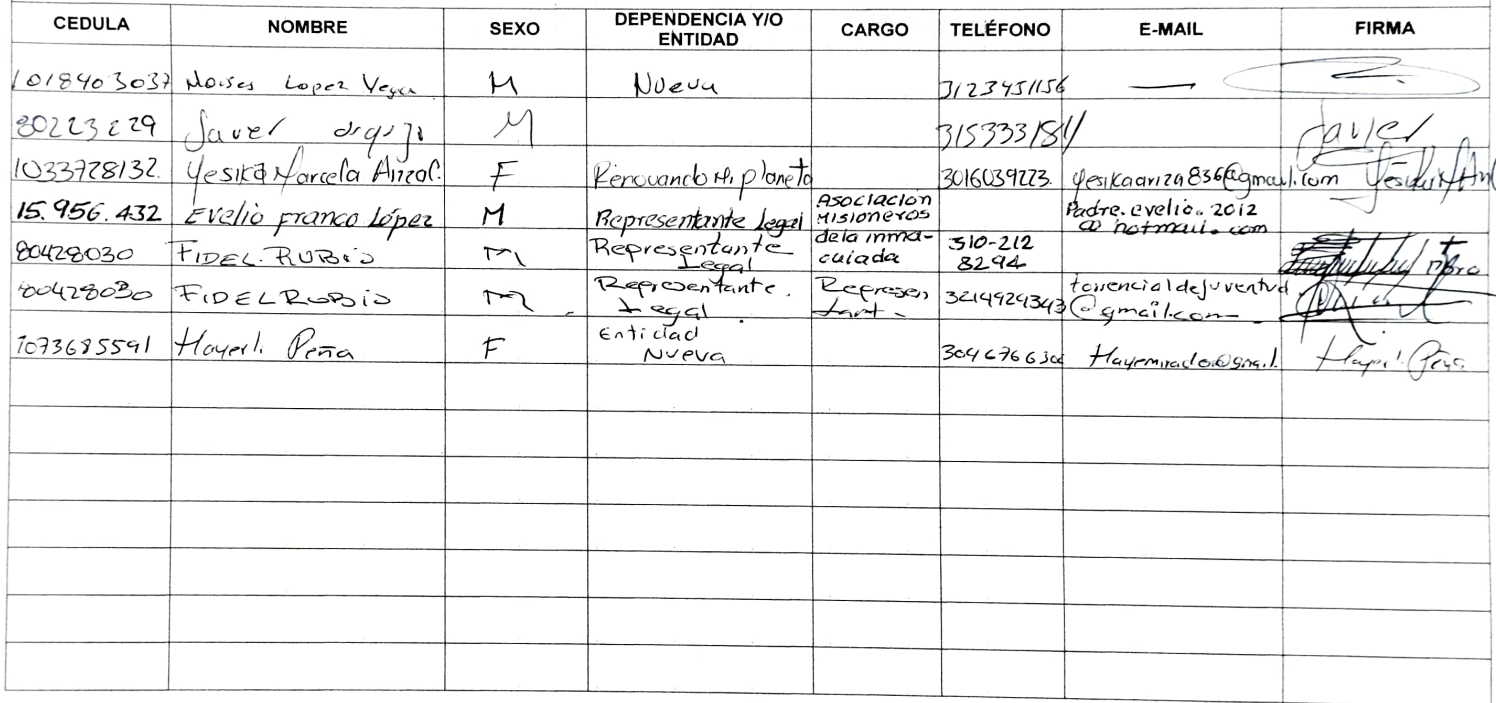 CEDULA NOMBRE SEXO DEPENDENCIA Y/O ENTIDAD CARGO TELÉFONO E-MAIL FIRMA
1018403037 Moises Lopez Vega M Nueva 3123451156 —
80223229 Javer M 315333184 Javier
1033728132. Yesika Marcela F Renovando Mi planeta 3016039223. yesikaariza836@gmail.com
15.956.432 Evelio Franco López M Representante Legal Asociación Misioneros de la inma-culada 310-212 8294 Padre.evelio.2012 @hotmail.com Pbro
80428030 FIDEL. RUBiO M Representante Legal
80428030 FIDEL RUBiO M Representante. Legal. Represen tant- 3214929343 torrencialdejuventud @gmail.com
1073685591 Hayerl. Peña F Entidad Nueva Hayerl. Peña